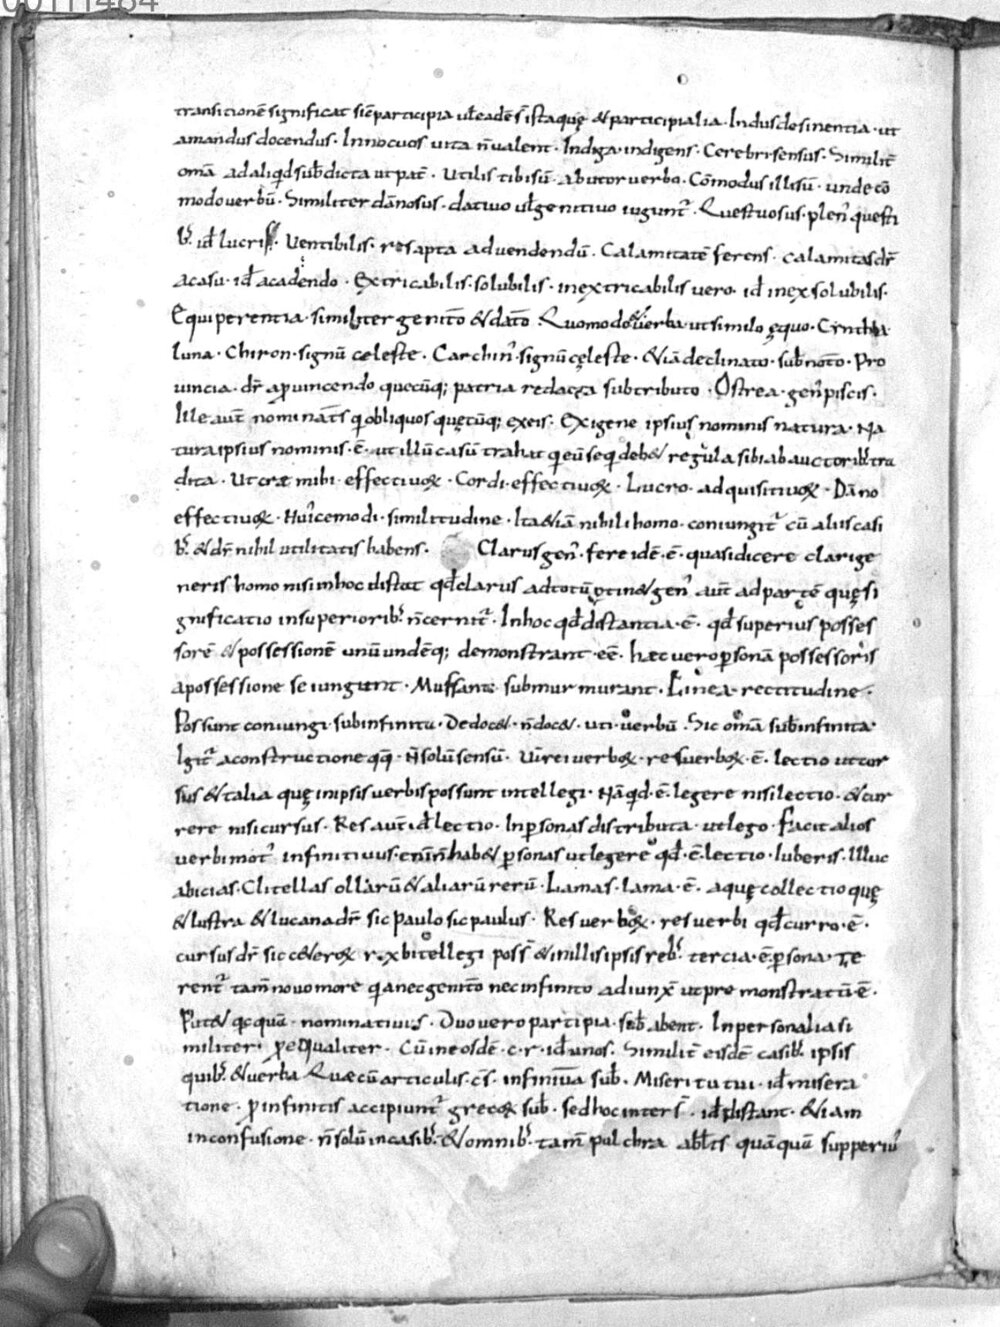 00111484
transitionē significat siē participia ul eadē s̄ ista quę & participialia · Indus desinentia · ut
amandus docendus · Innocuos uita n̄ ualent · Indiga · indigens · Cerebri sensus · Similit̄
omā ad aliqd sub dicta ut pat̄ · Utilis tibi sū · abutor uerbo · Cōmodus illi sū · unde cō
modo uerbū · Similiter dānosus · datiuo ul genitiuo iugunt᷒ · Questuosus · plen᷒ questi
b᷒ · id lucris · Uentibilis · res apta ad uendendū · Calamitatē ferens · calamitas dr̄
a casu · id a cadendo · Extricabilis · solubilis · inextricabilis uero · id inexsolubilis ·
Equiperentia · similiter genito & dato · Quomodo & uerba · ut similo ęquo · Cynthia
luna · Chiron · signū celeste · Carchin᷒ · signū cęleste · & iā declinato · sub noto · Pro
uincia · dr̄ a puincendo quecūq; patria redacta sub tributo · Ostrea · gen᷒ piscis ·
Ille aut̄ nominat̄s q obliquos quęcūq; exeis · Exigene ipsius nominis natura · Na
tura ipsius nominis · ē · ut illū casū trahat q eū seq deb& regula sibi ab auctorib᷒ tra
dita · Ut cræ mihi · effectiuoꝝ · Cordi · effectiuoꝝ · Lucro · adquisitiuoꝝ · Dāno
effectiuoꝝ · Huicemodi · similitudine · Ita & iā nihili homo · coniungit᷒ cū aliis casi
b᷒ · & dr̄ nihil utilitatis habens · Clarus gen᷒ · fere idē · ē · quasi dicere clari ge
neris homo nisi in hoc distat qd clarus ad totū ptin& gen᷒ aut̄ ad partē quę si
gnificatio in superiorib᷒ n̄ cernit᷒ · In hoc qd distantia · ē · qd superius posses
sorē & possessionē unū undēq; demonstrant · eē · hæc uero psonā possessoris
a possessione seiungunt · Muffante submurmurant · Linea · rectitudine ·
Possunt coniungi · subinfinitu · Dedoc& · n̄ doc& · uti · uerbū · Sic omā sub infinita ·
Igit᷒ a constructione qq · N̄ solū sensū · Uirei uerboꝝ · res uerboꝝ · ē · lectio ut cur
sus & talia quę in ipsis uerbis possunt intellegi · Nā qd · ē · legere nisi lectio · & cur
rere nisi cursus · Res aut̄ id lectio · In psonas distributa · ut lego · Facit alios
uerbi mot᷒ infinitiuus · eni n̄ hab& psonas ut legere qd · ē · lectio · Iuberis · Illuc
abicias · Clitellas ollarū & aliarū rerū · Lamas · lama · ē · aquę collectio quę
& lustra & lucana dr̄ sic paulo sic paulus · Res uerboꝝ · res uerbi qd curro · ē ·
cursus dr̄ sic c&eroꝝ intellegi poss̄ & in illis ipsis reb᷒ tercia · ē psona · Te
rent᷒ tam̄ nouo more q a nec genito nec infinito adiunx̄ ut premonstratū ē ·
Put& qcquā · nominatiuus · Duo uero partipia · sub abent · Inpersonalia si
militer · p equaliter · Cū in eosdē · c · r · id unos · Similit̄ eisdē casib᷒ ipsis
quib᷒ & uerba Quæ cū articulis · c̄s · infiniua sub · Miseri tu tui · id misera
tione · p infinitis accipiunt᷒ grecoꝝ sub · sed hoc inter s̄ · id distant · & iam
in confusione · n̄ solū in casib᷒ & omnib᷒ · tam̄ pulchra abl̄ts quā quū supperiu᷒